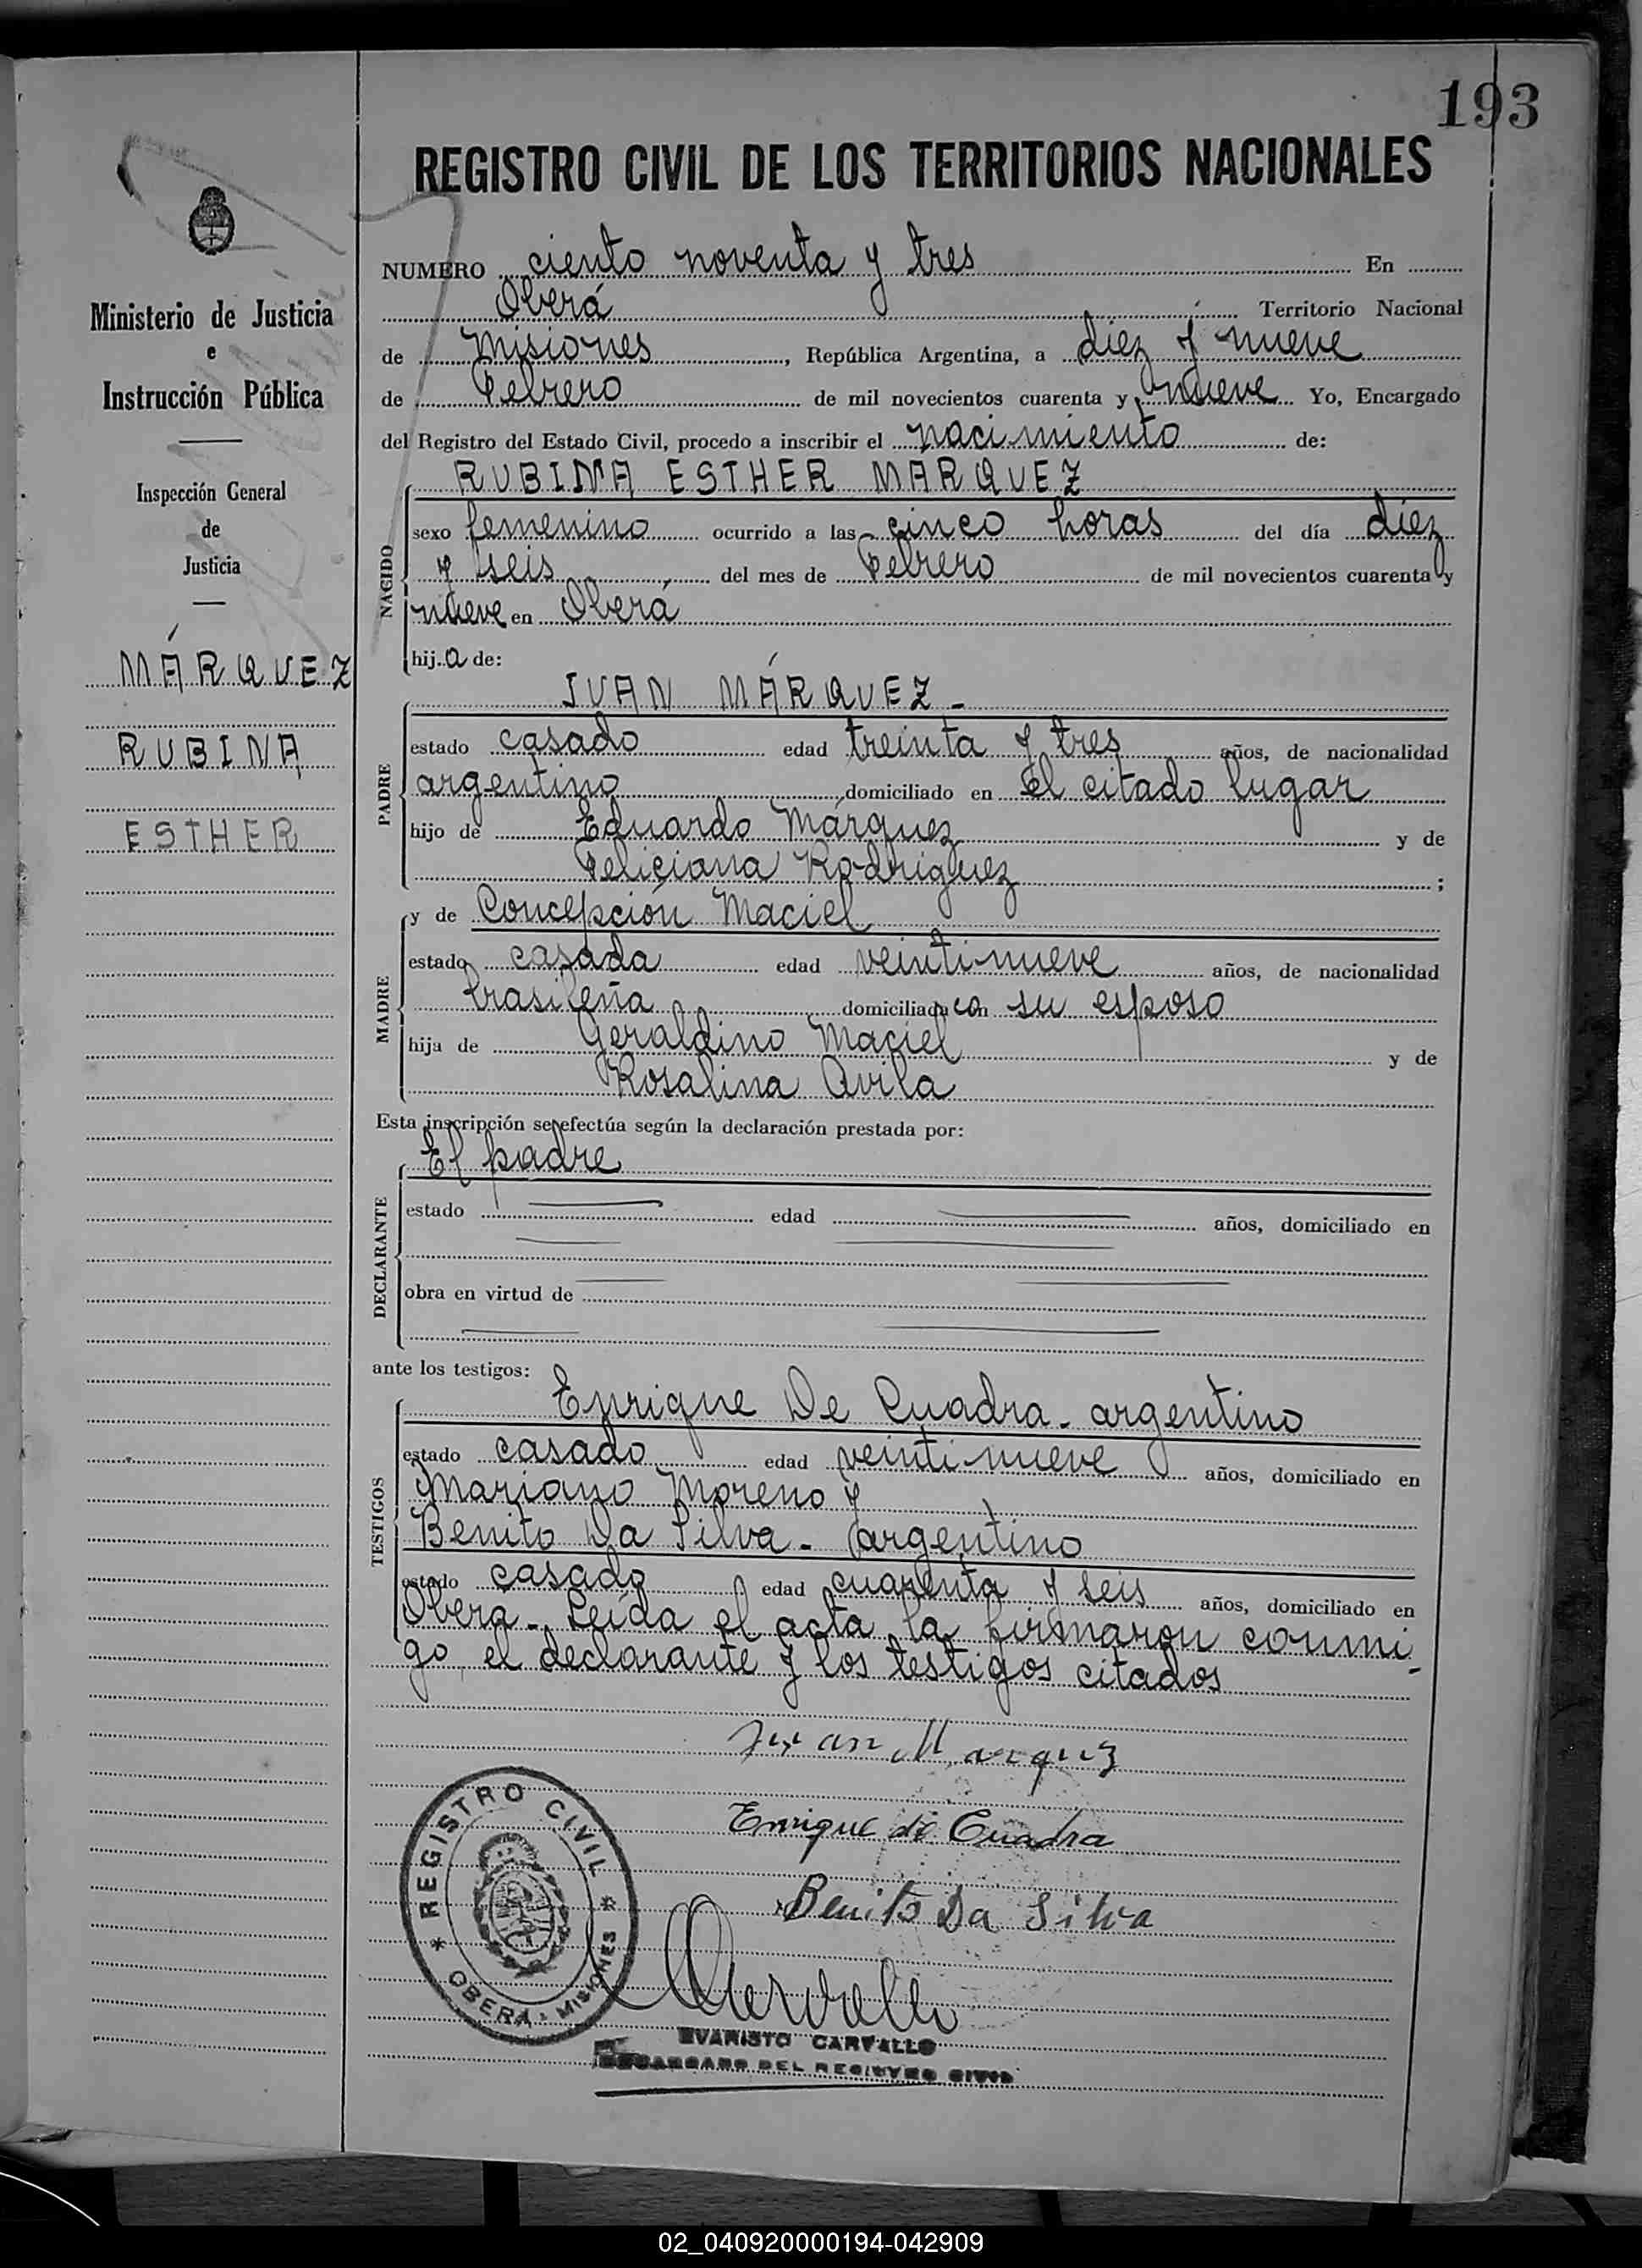 193
REGISTRO CIVIL DE LOS TERRITORIOS NACIONALES
Ministerio de Justicia
e
Instrucción Pública
Inspección General
de
Justicia
MÁRQUEZ
RUBINA
ESTHER
NUMERO ciento noventa y tres En
Oberá Territorio Nacional
de Misiones, República Argentina, a diez y nueve
de Febrero de mil novecientos cuarenta y nueve Yo, Encargado
del Registro del Estado Civil, procedo a inscribir el nacimiento de:
RUBINA ESTHER MARQUEZ
NACIDO
sexo femenino ocurrido a las cinco horas del día diez
y seis del mes de Febrero de mil novecientos cuarenta y
nueve en Oberá
hija de:
JUAN MÁRQUEZ -
PADRE
estado casado edad treinta y tres años, de nacionalidad
argentino domiciliado en el citado lugar
hijo de Eduardo Márquez y de
Feliciana Rodriguez ;
y de Concepción Maciel
MADRE
estado casada edad veintinueve años, de nacionalidad
brasileña domiciliada con su esposo
hija de Geraldino Maciel y de
Rosalina Avila
Esta inscripción se efectúa según la declaración prestada por:
El padre
DECLARANTE
estado edad años, domiciliado en
obra en virtud de
ante los testigos:
Enrique De Cuadra - argentino
TESTIGOS
estado casado edad veintinueve años, domiciliado en
Mariano Moreno y
Benito Da Silva - argentino
estado casado edad cuarenta y seis años, domiciliado en
Oberá - Leída el acta la firmaron conmi-
go, el declarante y los testigos citados
Juan Marquez
Enrique de Cuadra
Benito Da Silva
REGISTRO CIVIL
* OBERÁ - MISIONES *
Carvallo
EVARISTO CARVALLO
ENCARGADO DEL REGISTRO CIVIL
02_040920000194-042909